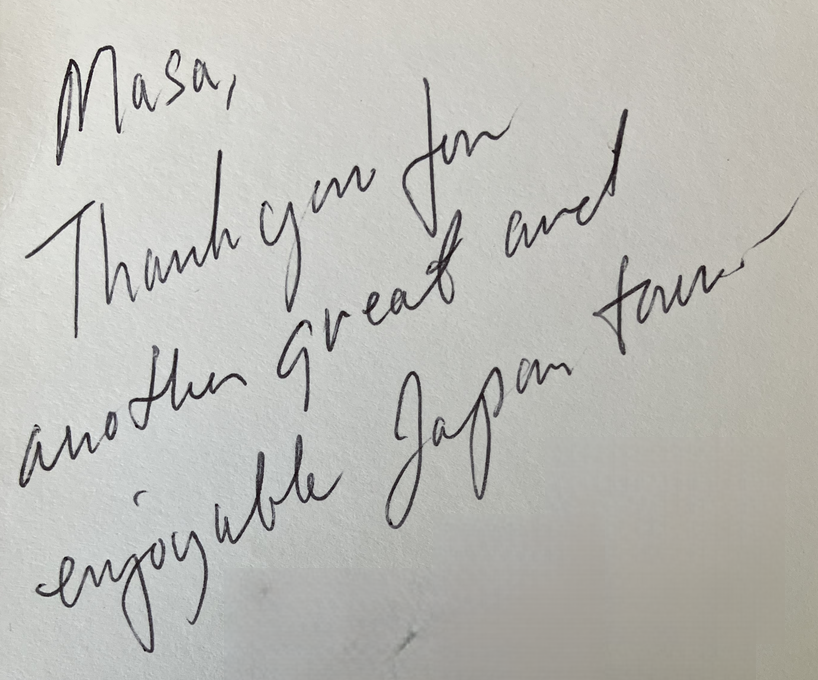 Masa,
Thank you for
another great and
enjoyable Japan tour